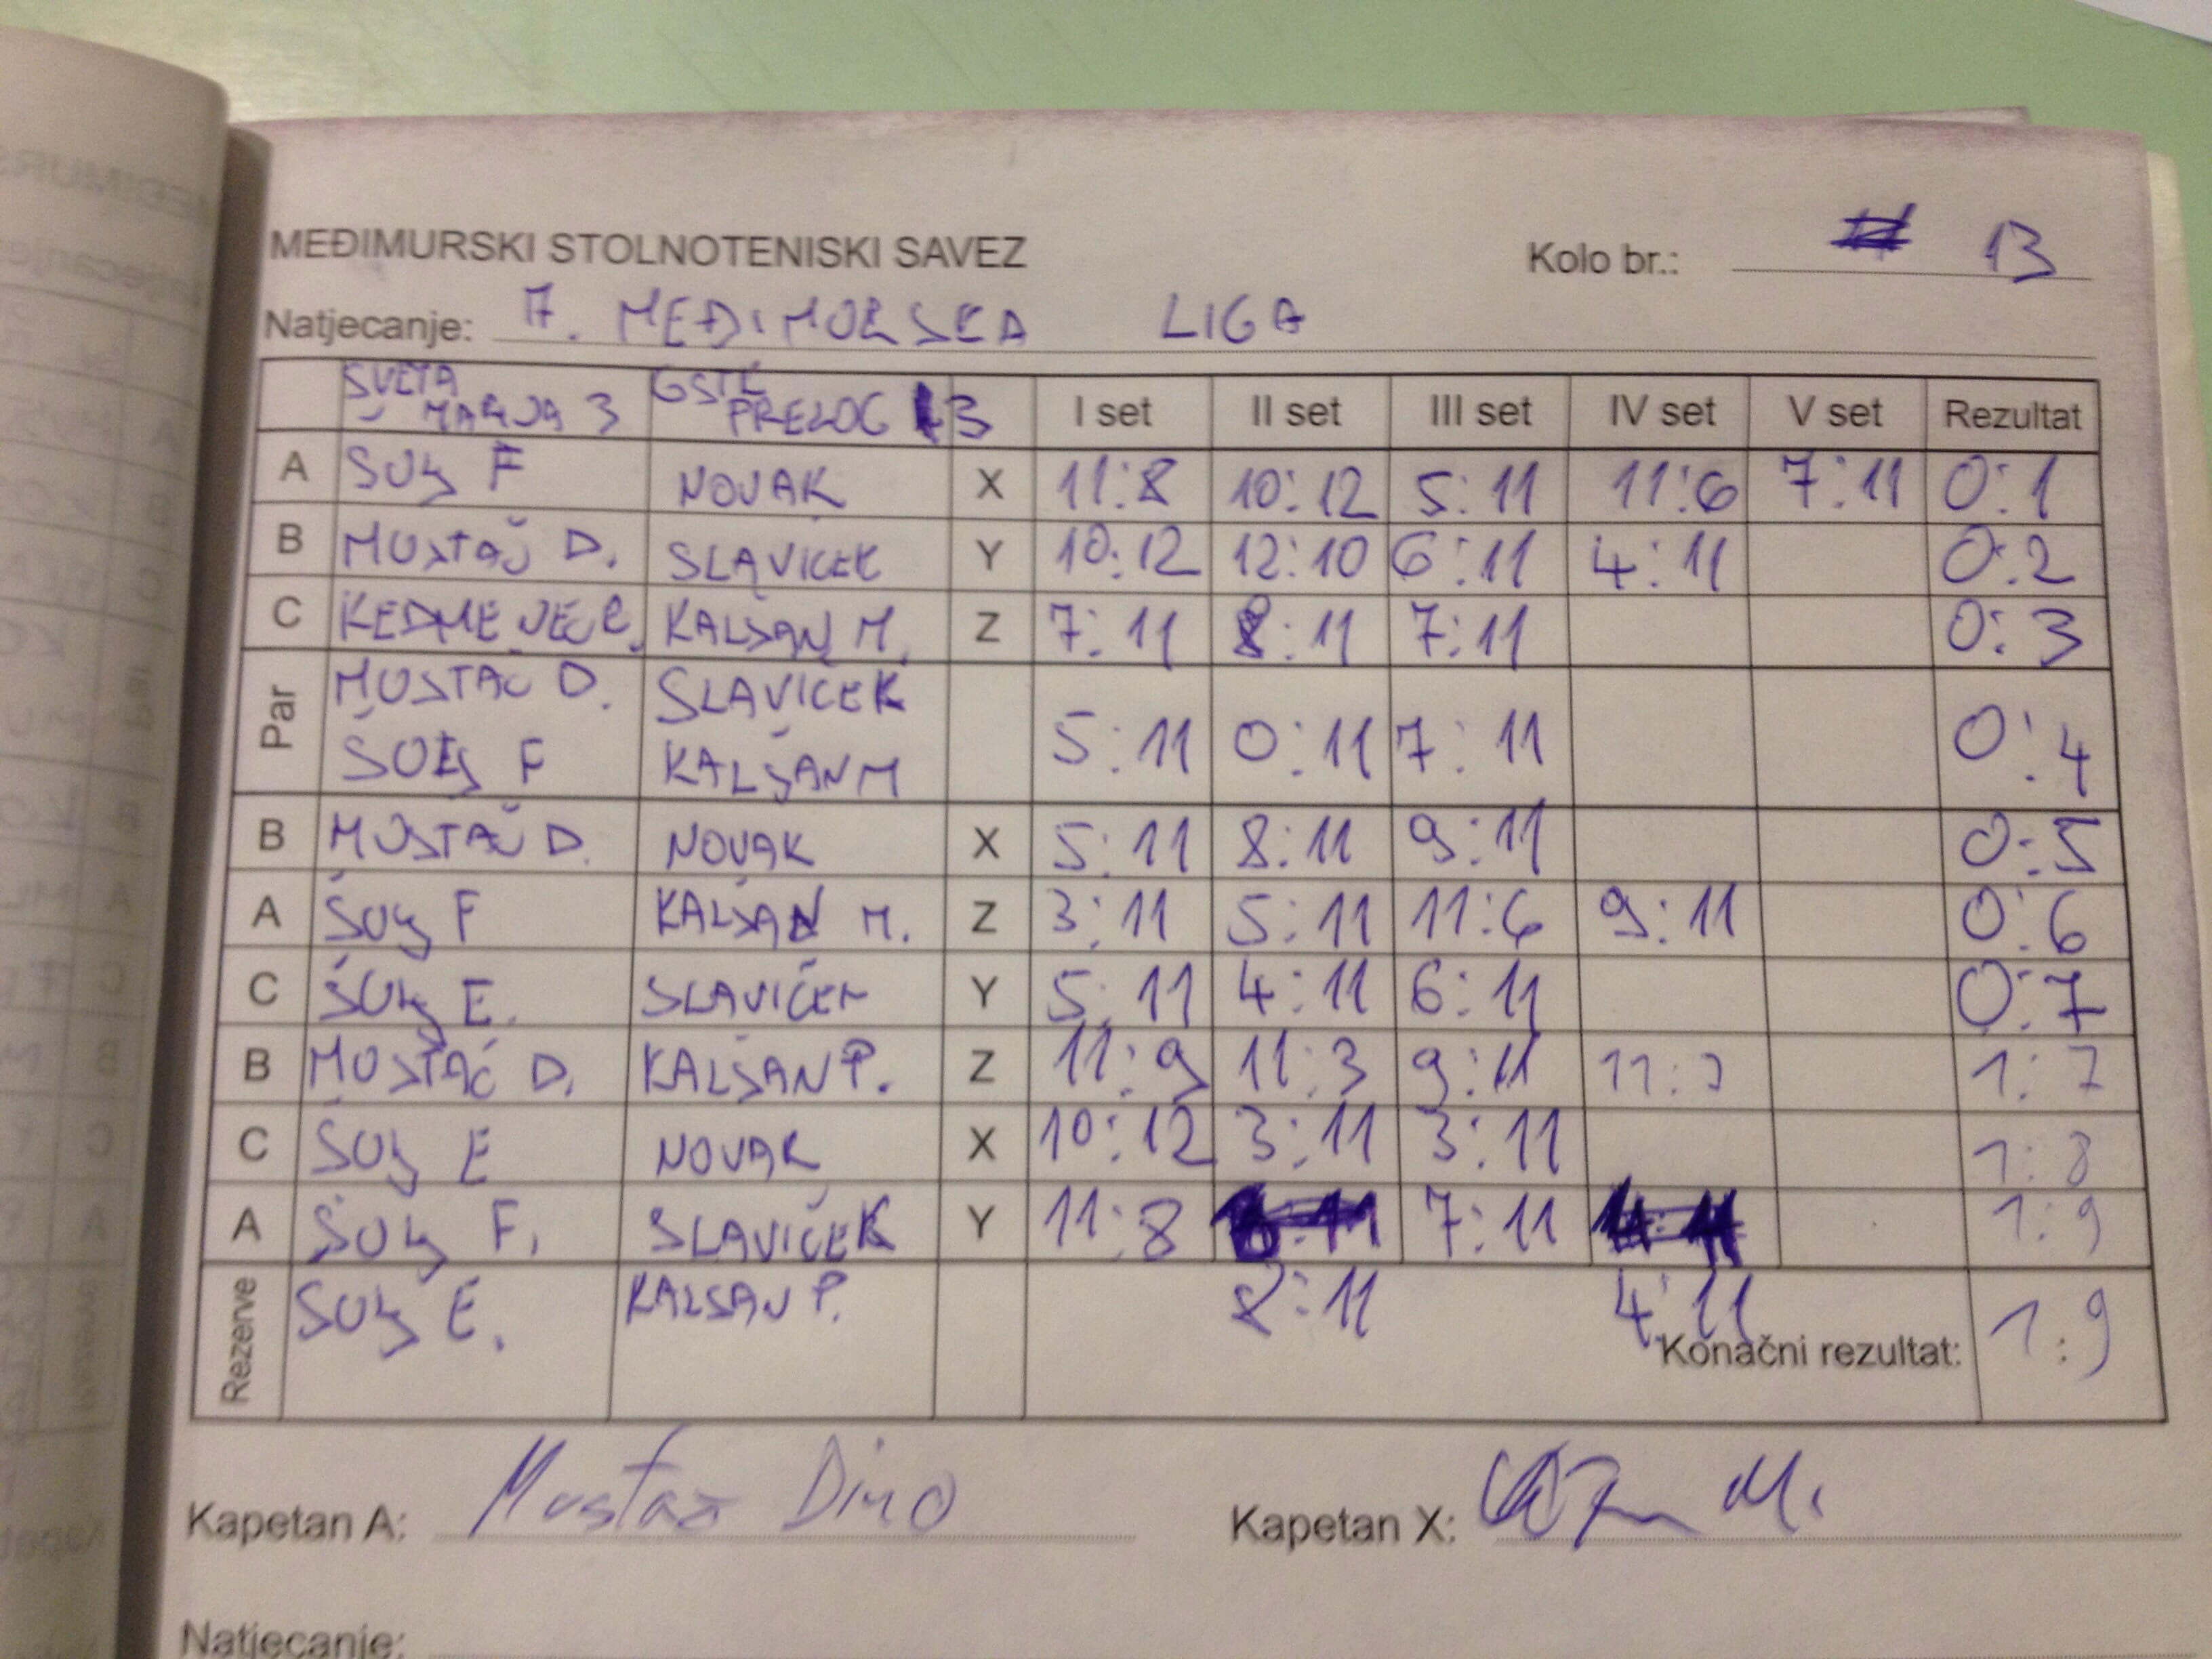 MEĐIMURSKI STOLNOTENISKI SAVEZ Kolo br.: 13
Natjecanje: 7. MEĐIMURSKA LIGA
SVETA MARIJA 3 GSTK PRELOG 3 I set II set III set IV set V set Rezultat
A ŠULJ F NOVAK X 11:8 10:12 5:11 11:6 7:11 0:1
B MUSTAČ D. SLAVICEK Y 10:12 12:10 6:11 4:11 0:2
C KALŠAN M. Z 7:11 8:11 7:11 0:3
Par MUSTAČ D. SLAVICEK
ŠULJ F KALŠAN M 5:11 0:11 7:11 0:4
B MUSTAČ D. NOVAK X 5:11 8:11 9:11 0:5
A ŠULJ F KALŠAN M. Z 3:11 5:11 11:6 9:11 0:6
C ŠULJ E. SLAVIČEK Y 5:11 4:11 6:11 0:7
B MUSTAČ D. KALŠAN P. Z 11:9 11:3 9:11 1:7
C ŠULJ E NOVAK X 10:12 3:11 3:11 1:8
A ŠULJ F. SLAVIČEK Y 11:8 7:11 1:9
Rezerve ŠULJ E. KALSAN P. 8:11 4:11
Konačni rezultat: 1:9
Kapetan A: Mustač Dino Kapetan X:
Natjecanje: